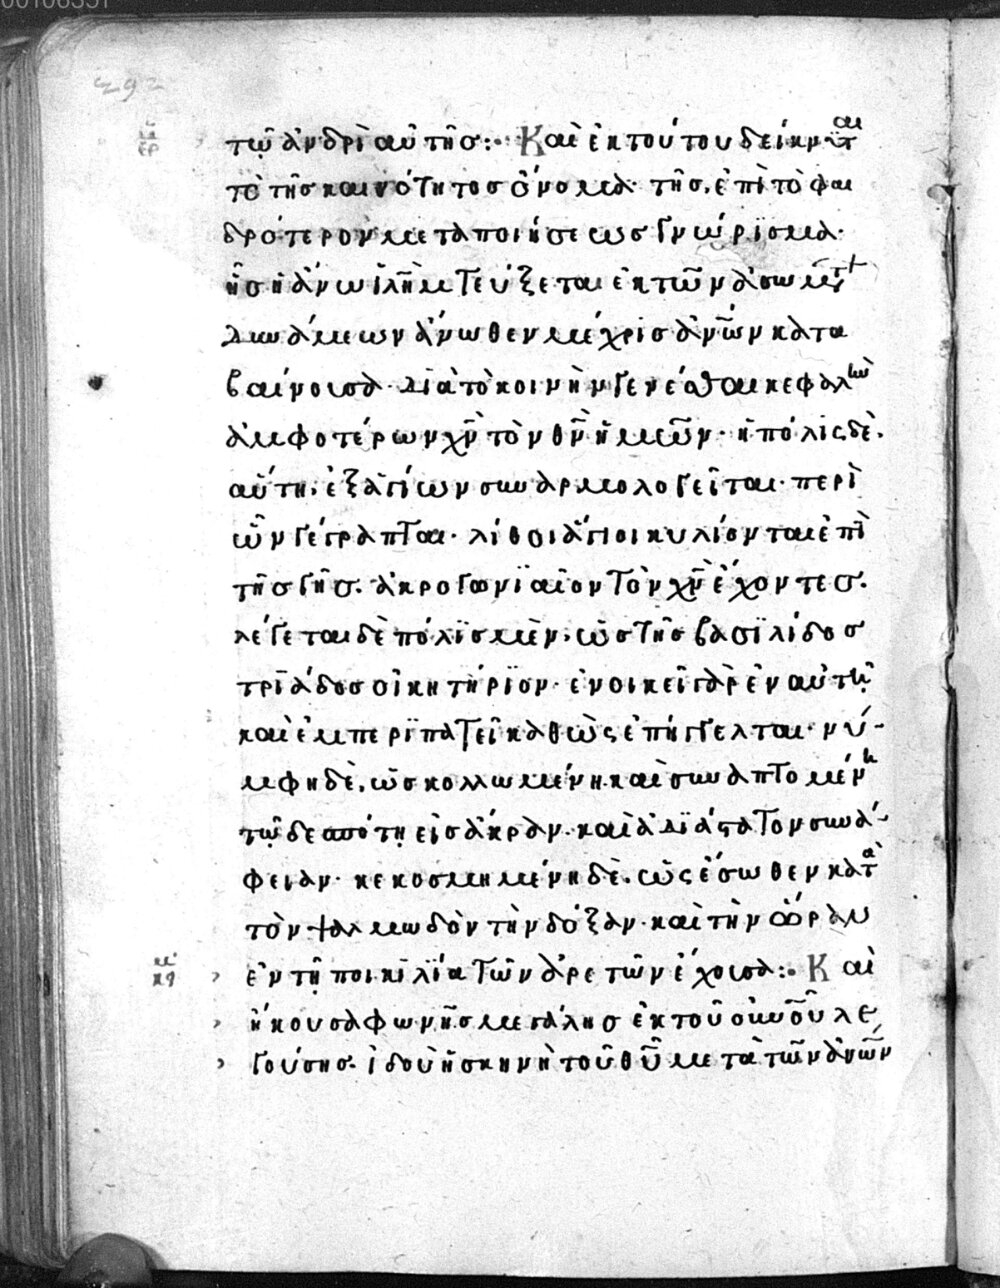 292
τῷ ἀνδρὶ αὐτῆσ:· Καὶ ἐκ τούτου δείκνυται
τὸ τῆσ καινότητοσ ὄνομα· τῆσ, ἐπὶ τὸ φαι
δρότερον μεταποιήσεωσ γνώρϊσμα·
ἧσ ἡ ἄνω ἰλὴμ τεύξεται ἐκ τῶν ἀσωμάτ
δυνάμεων ἄνωθεν μέχρισ ἀνων κατα
βαίνουσα· διὰ τὸ κοινὴν γενέσθαι κεφαλὴν
ἀμφοτέρων χν τὸν θν ἡμῶν· ἡ πόλις δὲ·
αὕτη, ἐξ ἁγίων συναρμολογεῖται· περὶ
ὧν γέγραπται· λίθοι ἅγιοι κυλίονται ἐπὶ
τῆσ γῆσ· ἀκρογωνϊαῖον τὸν χν ἔχοντεσ·
λέγεται δὲ πόλϊσ μὲν, ὡσ τῆσ βασϊλίδοσ
τρϊάδοσ οἰκητήρϊον· ἐνοικεῖ γὰρ ἐν αὐτῇ
καὶ ἐμπερϊπατεῖ καθὼς ἐπήγγελται· νύ-
μφη δὲ, ὡσ κολλωμένη καὶ συναπτομένη
τῷ δεσπότῃ εἰσ ἄκραν· καὶ ἀδϊάστατον συνά-
φειαν· κεκοσμημένη δὲ, ὡς ἔσωθεν κατὰ
τὸν ψαλμωδὸν τὴν δόξαν· καὶ τὴν ὥραν
ἐν τῇ ποικϊλίᾳ τῶν ἀρετῶν ἔχουσα:· Καὶ
ἤκουσα φωνῆσ μεγάλησ ἐκ τοῦ οὐνοῦ λε
γούσησ· ἰδοὺ ἡ σκηνὴ τοῦ θυ μετὰ τῶν ἀνων